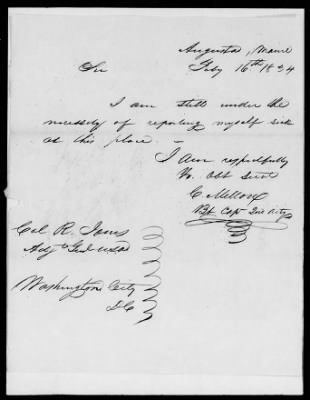 Augusta, Maine
Feby 16th 1834
Sir
I am still under the
necessity of reporting myself sick
at this place. —
I am respectfully
Yr. Obt Servt
C Mellon
Bt Capt 2nd Arty
Col. R. Jones
Adjt Genl USA
Washington City
DC